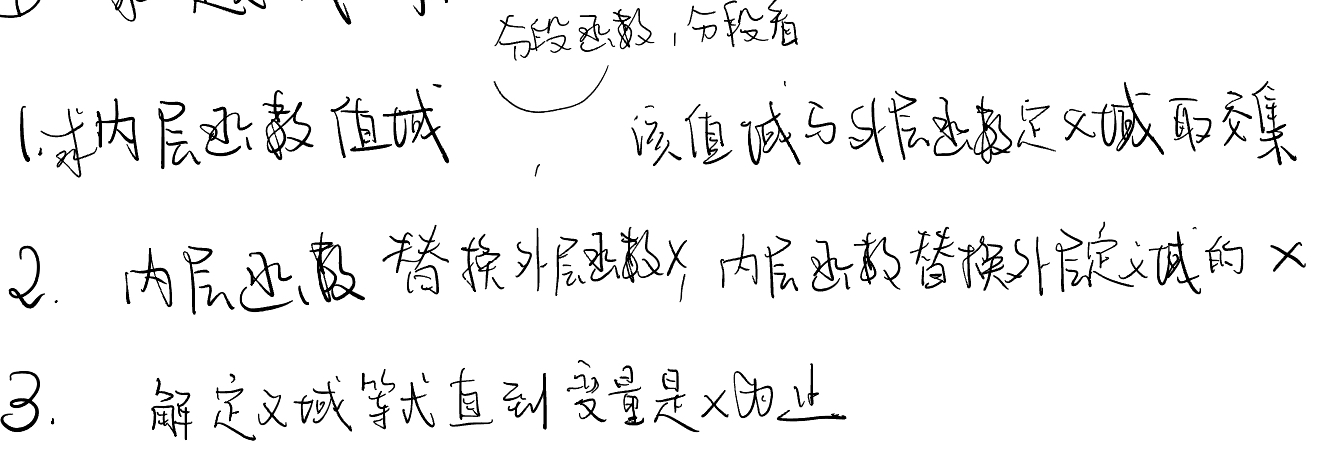 分段函数,分段看
1.求内层函数值域 , 该值域与外层函数定义域取交集
2. 内层函数替换外层函数x,内层函数替换外层定义域的x
3. 解定义域等式直到变量是x为止